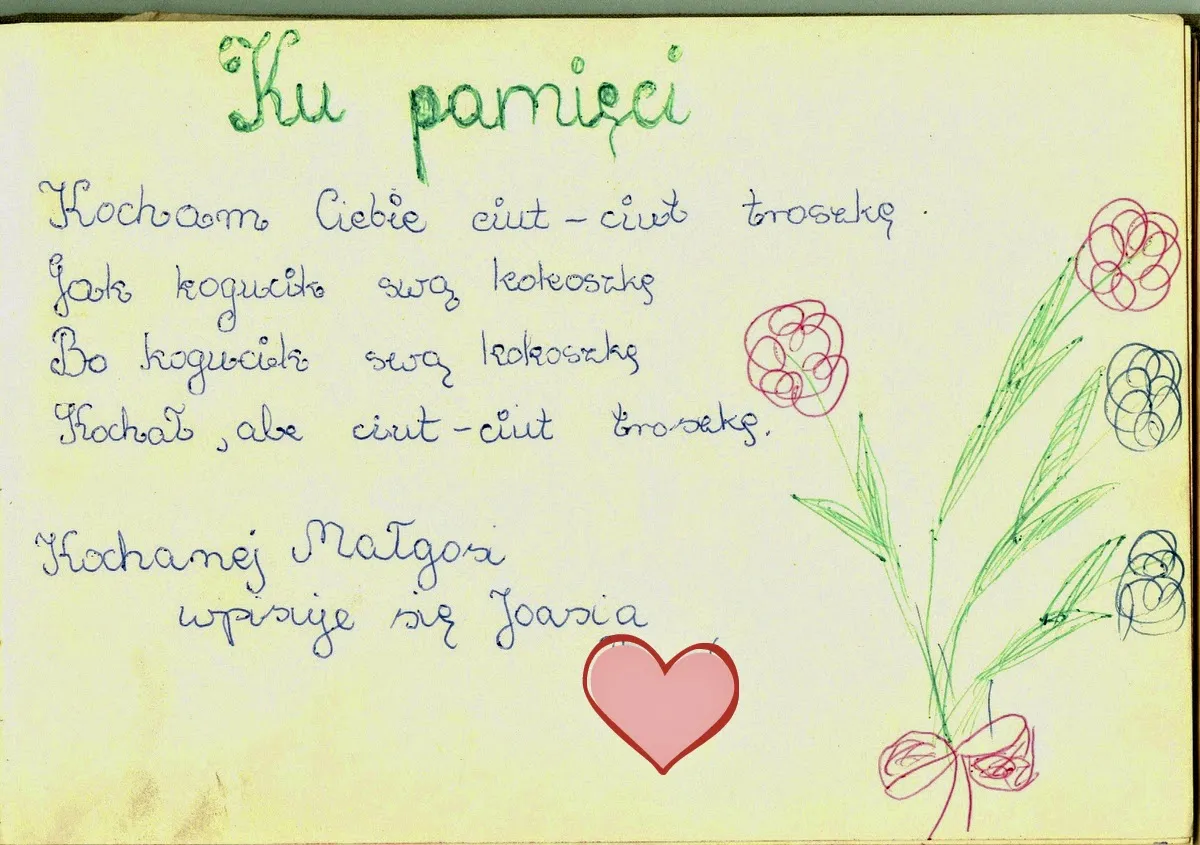 Ku pamięci
Kocham Ciebie ciut-ciut troszkę
Jak kogucik swą kokoszkę
Bo kogucik swą kokoszkę
Kochał, ale ciut-ciut troszkę.
Kochanej Małgosi
wpisuje się Joasia